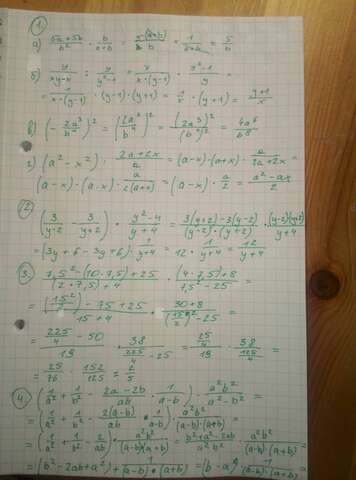 1.
а) (5a+5b)/b² · b/(a+b) = 5·(a+b)/b · 1/(a+b) = 5/b
б) y/(xy-x) : y/(y²-1) = y/(x·(y-1)) · (y²-1)/y =
= 1/(x·(y-1)) · (y-1)·(y+1) = 1/x · (y+1) = (y+1)/x
в) (-2a³/b⁴)² = (2a³/b⁴)² = (2a³)²/(b⁴)² = 4a⁶/b⁸
г) (a²-x²) : (2a+2x)/a = (a-x)·(a+x) · a/(2a+2x) =
(a-x)·(a+x) · a/(2(a+x)) = (a-x) · a/2 = (a²-ax)/2
2.
(3/(y-2) - 3/(y+2)) · (y²-4)/(y+4) = (3(y+2)-3(y-2))/((y-2)·(y+2)) · ((y-2)(y+2))/(y+4)
= (3y+6-3y+6) · 1/(y+4) = 12 · 1/(y+4) = 12/(y+4)
3. (7,5²-(10·7,5)+25)/((2·7,5)+4) · ((4·7,5)+8)/(7,5²-25) =
= ((15/2)²-75+25)/(15+4) · (30+8)/((15/2)²-25) =
= (225/4-50)/19 · 38/(225/4-25) = (25/4)/19 · 38/(125/4)
= 25/76 · 152/125 = 2/5
4. (1/a² + 1/b² - (2a-2b)/ab · 1/(a-b)) · a²b²/(a²-b²) =
= (1/a² + 1/b² - 2(a-b)/ab · 1/(a-b)) · a²b²/((a-b)·(a+b))
= (1/a² + 1/b² - 2/ab) · a²b²/((a-b)·(a+b)) = (b²+a²-2ab)/a²b² · a²b²/((a-b)·(a+b)) =
= (b²-2ab+a²) · 1/((a-b)·(a+b)) = (b-a)² · 1/((a-b)·(a+b)) =